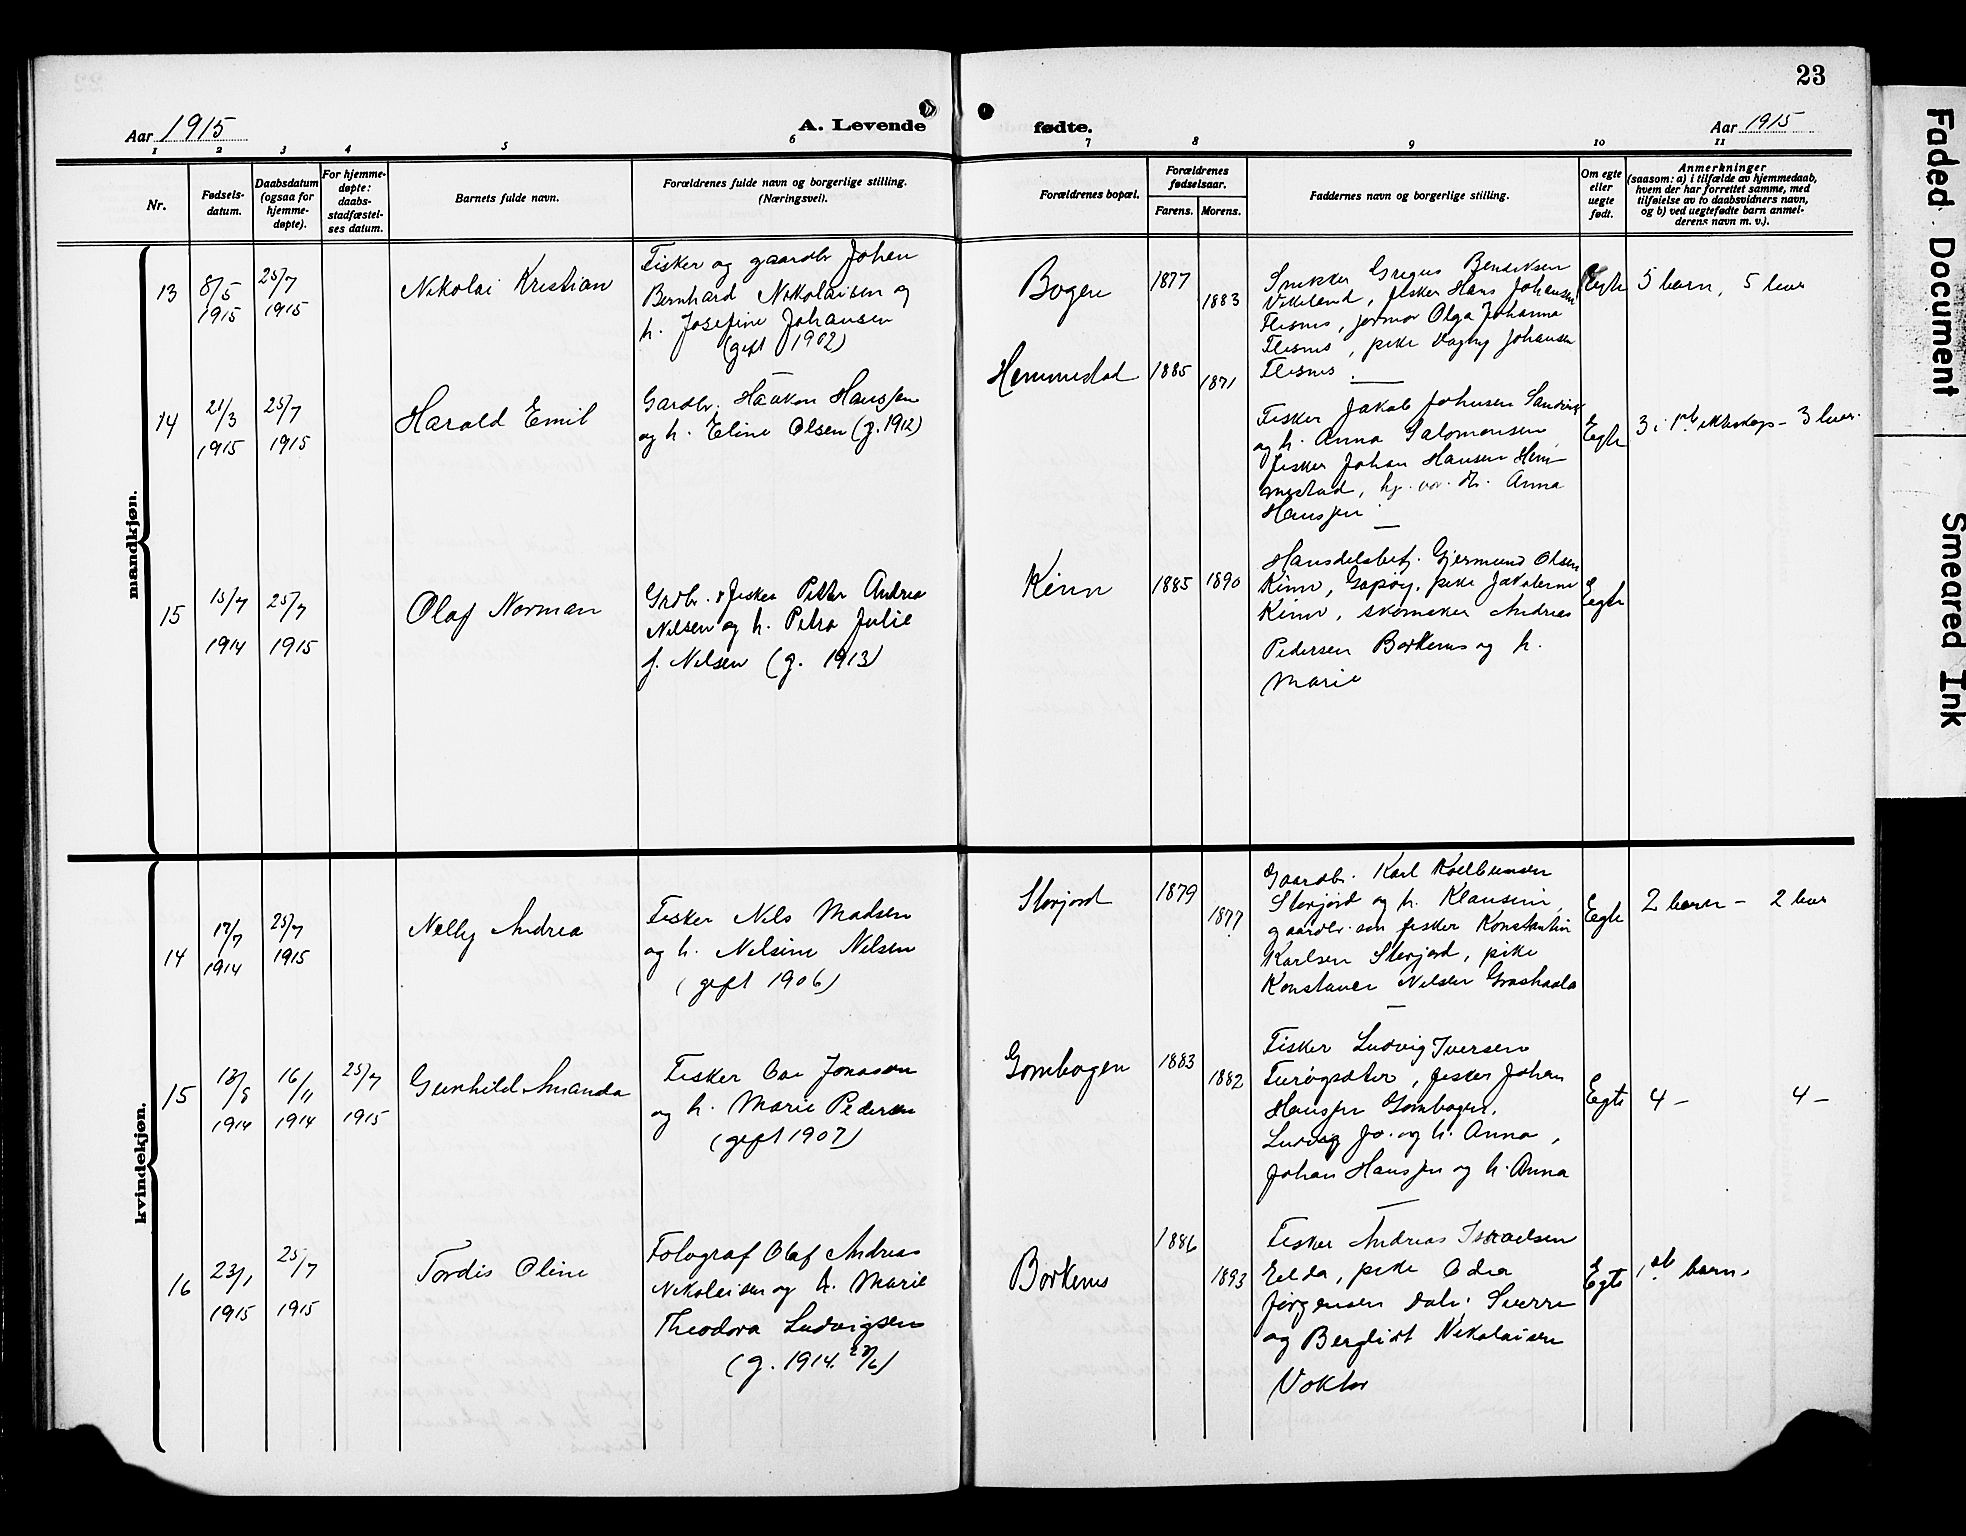 23
Aar 1915
A. Levende
fødte.
Aar 1915
1 2 3 4 5 6 7 8 9 10 11
Nr.
Fødsels-
datum.
Daabsdatum
(ogsaa for
hjemme-
døpte).
For hjemme-
døpte:
daabs-
stadfæstel-
ses datum.
Barnets fulde navn.
Forældrenes fulde navn og borgerlige stilling.
(Næringsvei).
Forældrenes bopæl.
Forældrenes
fødselsaar.
Farens. Morens.
Faddernes navn og borgerlige stilling.
Om egte
eller
uegte
født.
Anmerkninger
(saasom: a) i tilfælde av hjemmedaab,
hvem der har forrettet samme, med
tilføielse av to daabsvidners navn,
og b) ved uegtefødte barn anmel-
derens navn m. v.).
mandkjøn.
13
8/5
1915
25/7
1915
Nikolai Kristian
Fisker og gaardbr Johan
Bernhard Nikolaisen og
h. Josefine Johansen
(gift 1902)
Bogen
1877
1883
Snekker Gregus Bendiksen
Vikeland, fisker Hans Johansen
Flesnes, jormor Olga Johanna
Flesnes, pike Dagny Johansen
Flesnes
Egte
5 barn, 5 lever
14
21/3
1915
25/7
1915
Harald Emil
Gardbr. Haakon Hanssen
og h. Eline Olsen (g. 1912)
Hemmestad
1885
1871
Fisker Jakob Johnsen Sandvik
og h. Anna Salomonsen
fisker Johan Hansen Hem-
mestad, Anna
Hanssen
Egte
3 i 1ste ekteskap - 3 lever.
15
15/7
1914
25/7
1915
Olaf Norman
Grdbr. & fisker Petter Andrea
Nilsen og h. Petra Julie
f. Nilsen (g. 1913)
Kinn
1885
1890
Handelsbetj. Gjermund Olsen
Kinn, Gapøy, pike Jakobine
Kinn, skomaker Andreas
Pedersen Borkenes og h.
Marie
Egte
kvindekjøn.
14
17/7
1914
25/7
1915
Nelly Andrea
Fisker Nils Madsen
og h. Nilsine Nilsen
(gift 1906)
Storjord
1879
1877
Gaardbr. Karl Kolbensen
Storjord og h. Klausine,
gaardbr. søn fisker Konstantin
Karlsen Storjord, pike
Konstance Nilsen Grashaala
Egte
2 barn - 2 lever
15
13/8
1914
16/11
1914
25/7
1915
Gunhild Amanda
Fisker Ole Jonasson
og h. Marie Pedersen
(gift 1907)
Gombogen
1883
1882
Fisker Ludvig Iversen
Turøgsæter, fisker Johan
Hanssen Gombogen,
Ludvig Jo. og h. Anna,
Johan Hanssen og h. Anna
Egte
4 - 4 -
16
23/1
1915
25/7
1915
Tordis Oline
Fotograf Olaf Andreas
Nikolaisen og h. Marie
Theodora Ludvigsen
(g. 1914 27/6)
Borkenes
1886
1893
Fisker Andreas Israelsen
Elda, pike Odea
Jørgensen Dale. Sverre
og Bergliot Nikolaisen
Voktor
Egte
1ste barn.
Faded Document
Smeared Ink